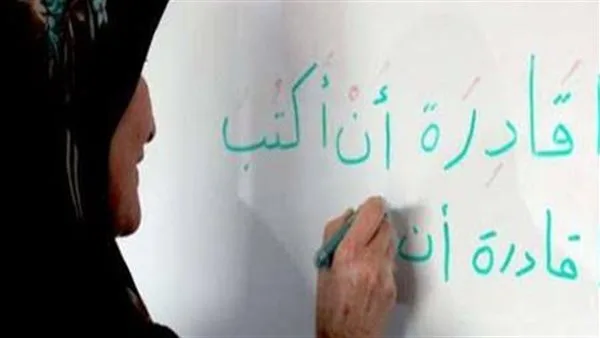 ا قَادِرَة أَنْ أَكتُبَ
قادرة أن